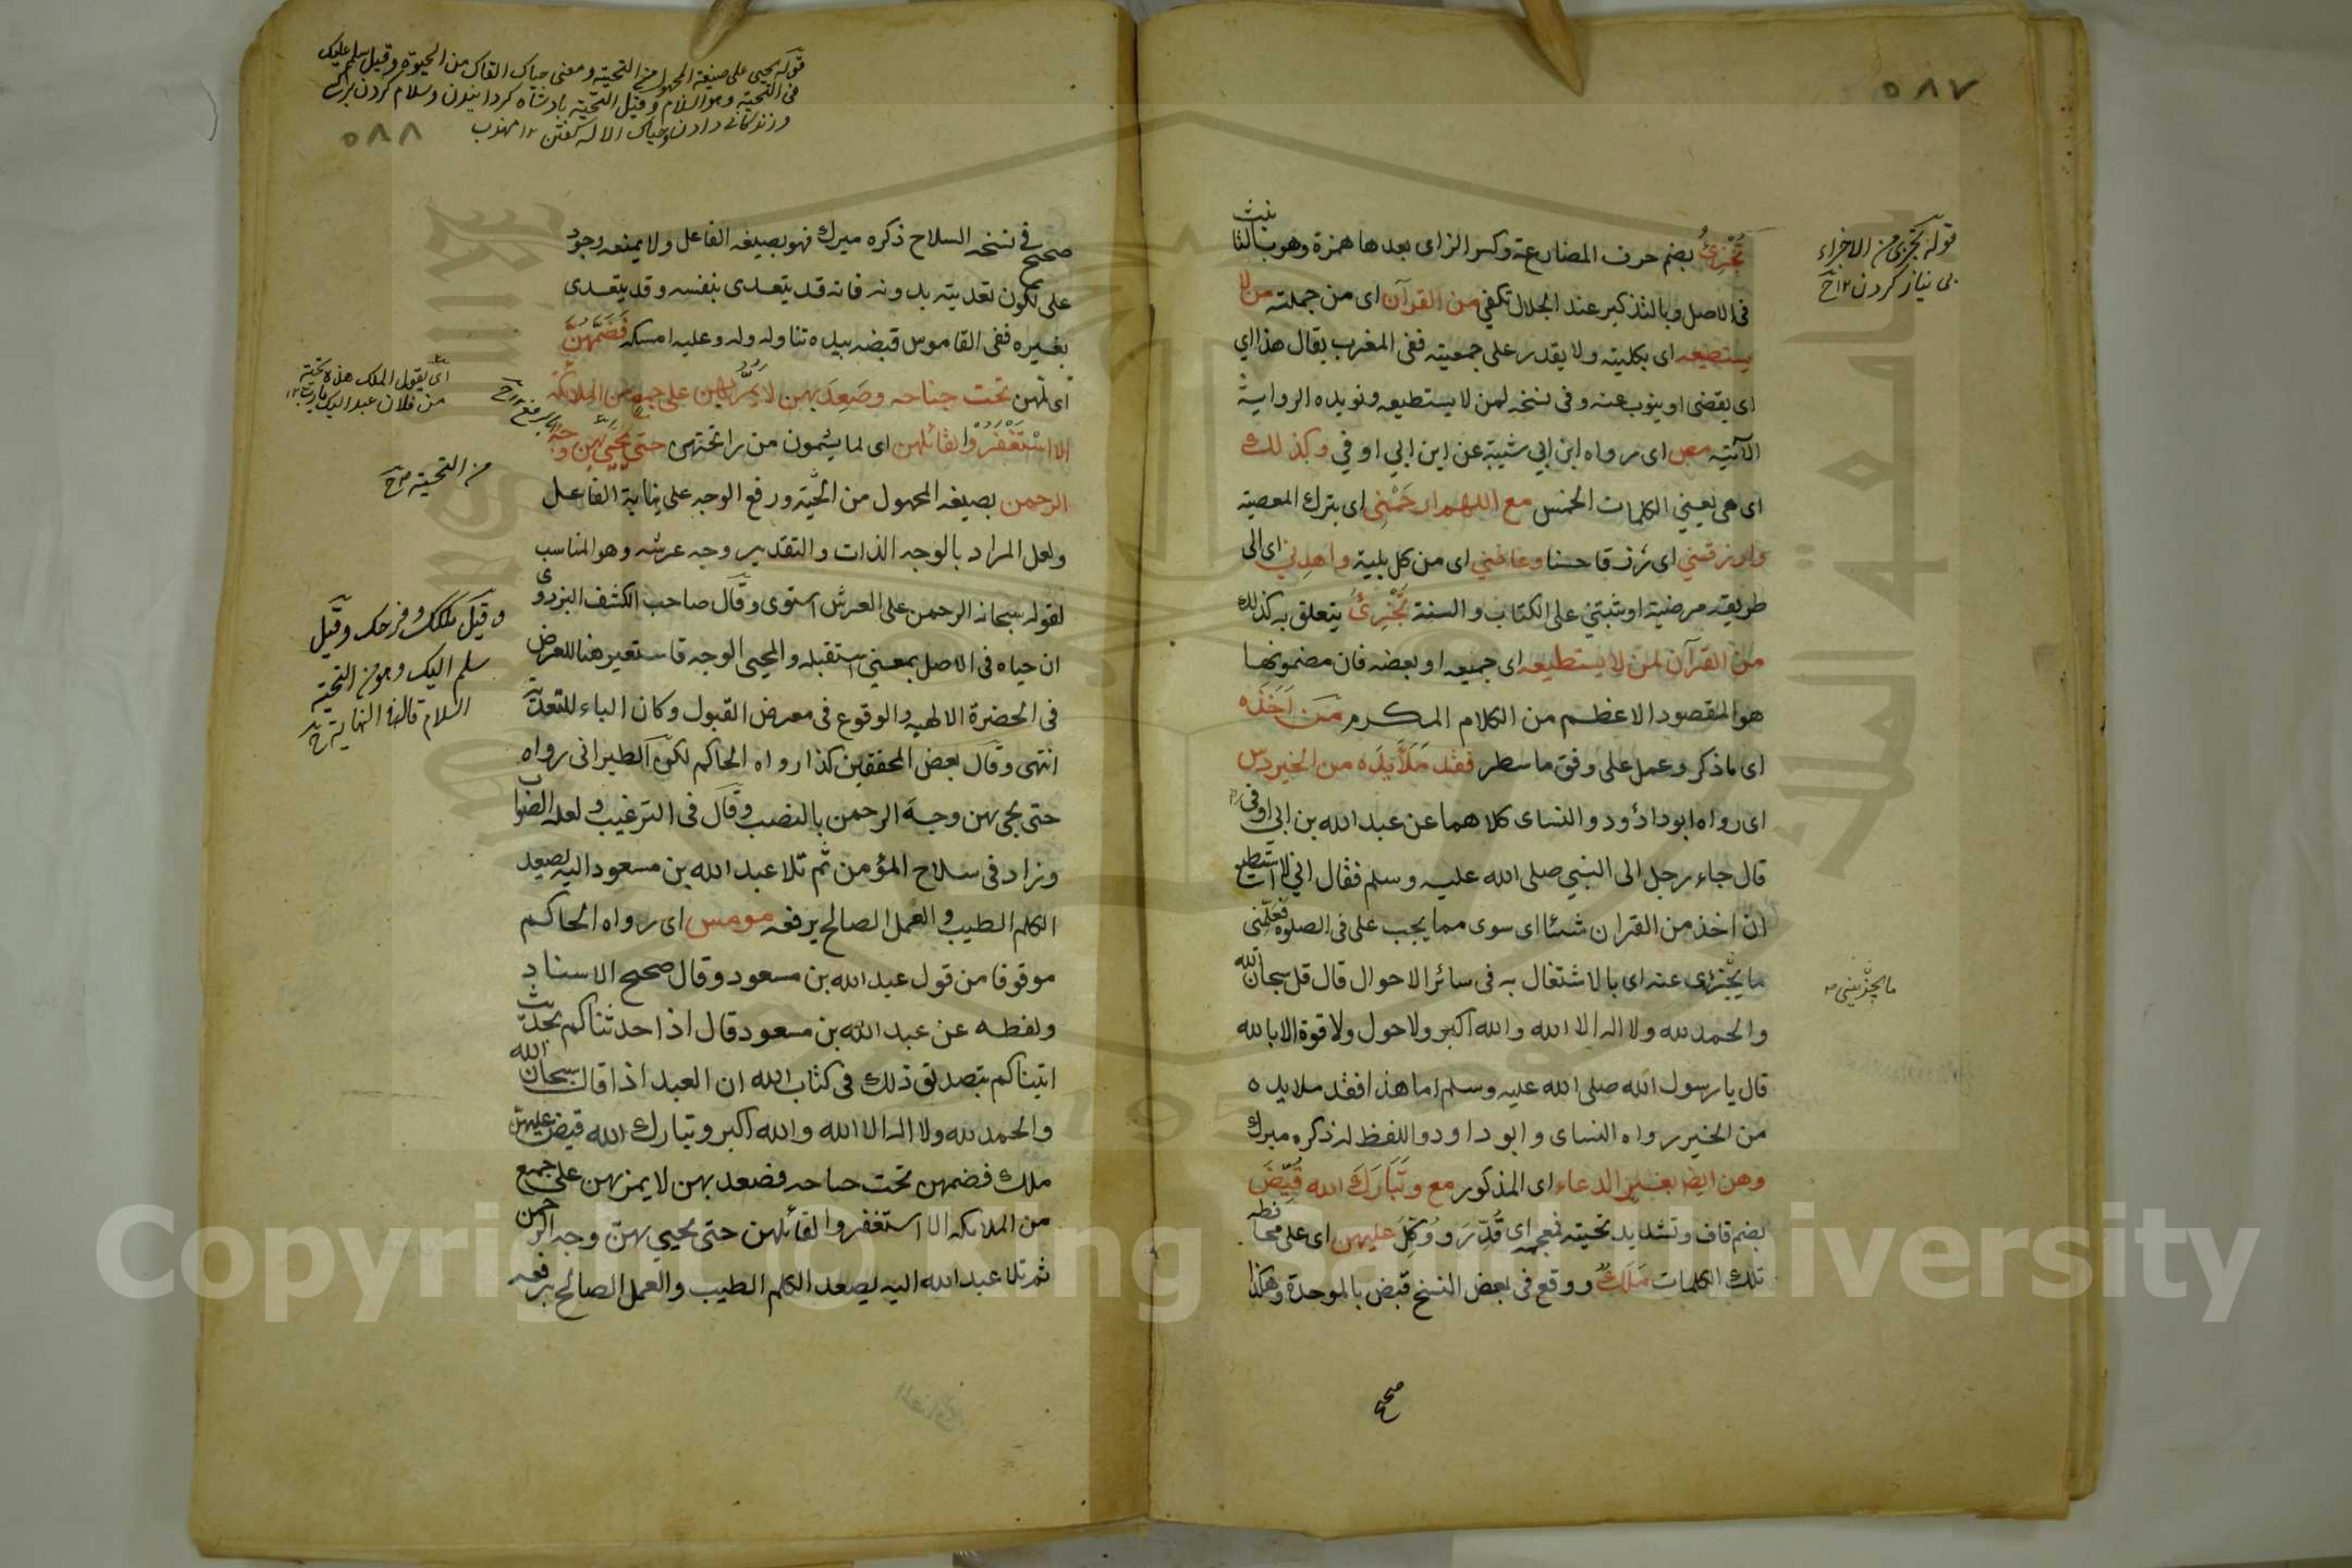 ٥٨٧
تُجْزِئُ بضم حرف المضارعة وكسر الزاى بعدها همزة وهو بالتا نيث
فى الاصل وبالتذكير عند الجلال تكفي من القرآن اى من جملته من لا
يستطيعه اى بكليته ولا يقدر على جمعيته ففى المغرب يقال هذا اي
اى يقضى او ينوب عنه وفى نسخه لمن لا يستطيعه ويؤيده الرواية
الآتيه مص اى رواه ابن ابي شيبة عن ابن ابي اوفي وكذلك
اى هى يعني الكلمات الخمس مع اللهم ارحَمْنِى اى بترك المعصية
وارزقني اى رزقا حسنا وعافني اى من كل بلية واهدِني اى الى
طريقه مرضية او ثبتني على الكتاب والسنة تُجْزِئُ يتعلق به كذلك
من القرآن لمن لا يستطيعه اى جميعه او بعضه فان مضمونها
هو المقصود الاعظم من الكلام المكرم مَن اَخَذَه
اى ما ذكر وعمل على وفق ما سطر فقد مَلَأَ يَدَه من الخير دس
اى رواه ابو داؤد والنساى كلاهما عن عبد الله بن ابي اوفى
قال جاء رجل الى النبي صلى الله عليه وسلم فقال اني لا استطيع
ان اخذ من القران شئا اى سوى مما يجب على فى الصلوة فعَلِّمنى
ما يجْزِى عنه اى بالاشتغال به فى سائر الاحوال قال قل سبحان الله
والحمد لله ولا اله الا الله والله اكبر ولا حول ولا قوة الا بالله
قال يا رسول الله صلى الله عليه وسلم اما هذا فقد ملا يده
من الخير رواه النساى وابو داود واللفظ له ذكره ميرك
وهن ايضا بغير الدعاء اى المذكور مع وتَبَارَكَ الله قُيِّضَ
بضم قاف وتشديد تحتيه فمعجمه اى قُدِّرَ ووُكِّلَ عليهن اى على محا فظه
تلك الكلمات مَلَكٌ ووقع فى بعض النسخ قبض بالموحدة وهكذا
صحح
قوله تجزى من الاجزاء
بى نياز كردن ١٢ ح
ما يجزيني
قوله يحيى على صيغة المجهول من التحيته ومعنى حياك القاك من الحيوة وقيل سلم عليك
٥٨٨
صحح فى نسخه السلاح ذكره ميرك فهو بصيغه الفاعل ولا يمنعه وجود
على لكون تعديته بدونه فانه قد يتعدى بنفسه وقد يتعدى
بغيره ففى القاموس قبضه بيده تناوله وله وعليه امسكه فَضَمَّهُنَّ
اى لهن تحت جناحه وصَعِدَ بهن لا يَمُرُّ بهن على جمع من الملائكة
الا اسْتَغْفَرُوْا لقائلهن اى لما يشمون من رائحتهن حتى يُحَيَّى بهن وجه
الرحمن بصيغه المجهول من التحيّة ورفع الوجه على نيابة الفاعل
ولعل المراد بالوجه الذات والتقدير وجه عرشه وهو المناسب
لقوله سبحانه الرحمن على العرش استوى وقال صاحب الكشف البزدوى
ان حياه فى الاصل بمعني استقبله والمحيى الوجه فاستعير هنا للعرض
فى الحضرة الالهيه والوقوع فى معرض القبول وكان الباء للتعدية
انتهى وقال بعض المحققين كذا رواه الحاكم لكن الطبرانى رواه
حتى يجى بهن وجهَ الرحمن بالنصب وقال فى الترغيب ولعله الصواب
وزاد فى سلاح المؤمن ثم تلا عبد الله بن مسعود اليه يصعد
الكلم الطيب والعمل الصالح يرفعه مومس اى رواه الحاكم
موقوفا من قول عبد الله بن مسعود وقال صحح الاسناد
ولفظه عن عبد الله بن مسعود قال اذا حدثناكم بحديث
اتيناكم بتصديق ذلك فى كتاب الله ان العبد اذا قال سبحان الله
والحمد لله ولا اله الا الله والله اكبر وتبارك الله قبض عليهن
ملك فضمهن تحت جناحه فصعد بهن لا يمر بهن على جميع
من الملائكه الا استغفروا لقائلهن حتى يحيى بهن وجه الرحمن
ثم تلا عبد الله اليه يصعد الكلم الطيب والعمل الصالح يرفعه
اى يقول الملك هذه تحية
من فلان عبد اليك يا رب ١٢
من التحيته ح
وقيل ملكك وفرحك وقيل
سلم اليك وهو من التحية
السلام قاله فى النهاية ح
Copyright © King Saud University